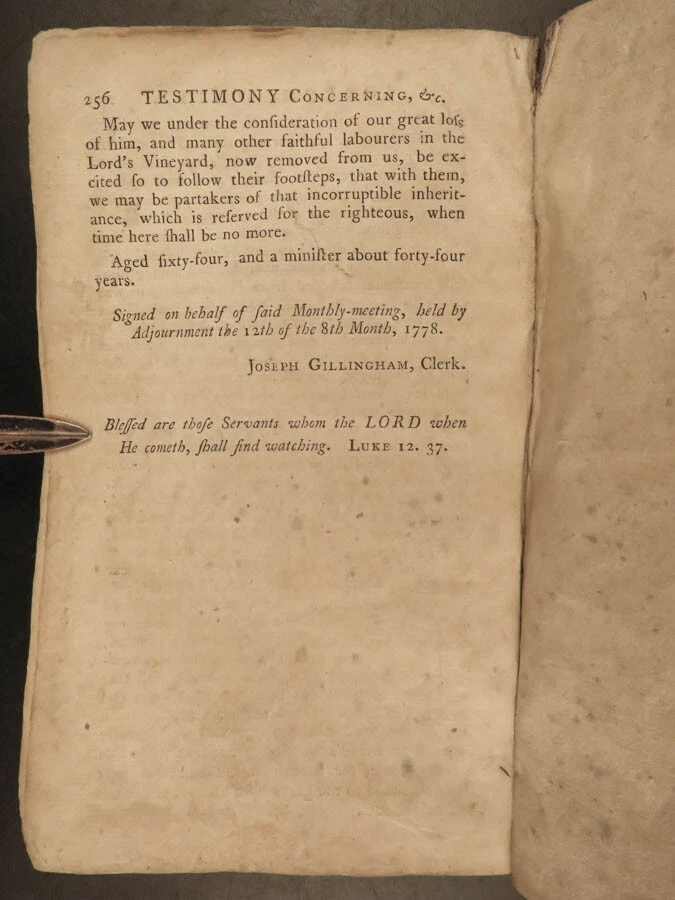 256 TESTIMONY CONCERNING, &c.
May we under the conſideration of our great loſs
of him, and many other faithful labourers in the
Lord's Vineyard, now removed from us, be ex-
cited ſo to follow their footſteps, that with them,
we may be partakers of that incorruptible inherit-
ance, which is reſerved for the righteous, when
time here ſhall be no more.
Aged ſixty-four, and a miniſter about forty-four
years.
Signed on behalf of ſaid Monthly-meeting, held by
Adjournment the 12th of the 8th Month, 1778.
JOSEPH GILLINGHAM, Clerk.
Bleſſed are thoſe Servants whom the LORD when
He cometh, ſhall find watching. LUKE 12. 37.